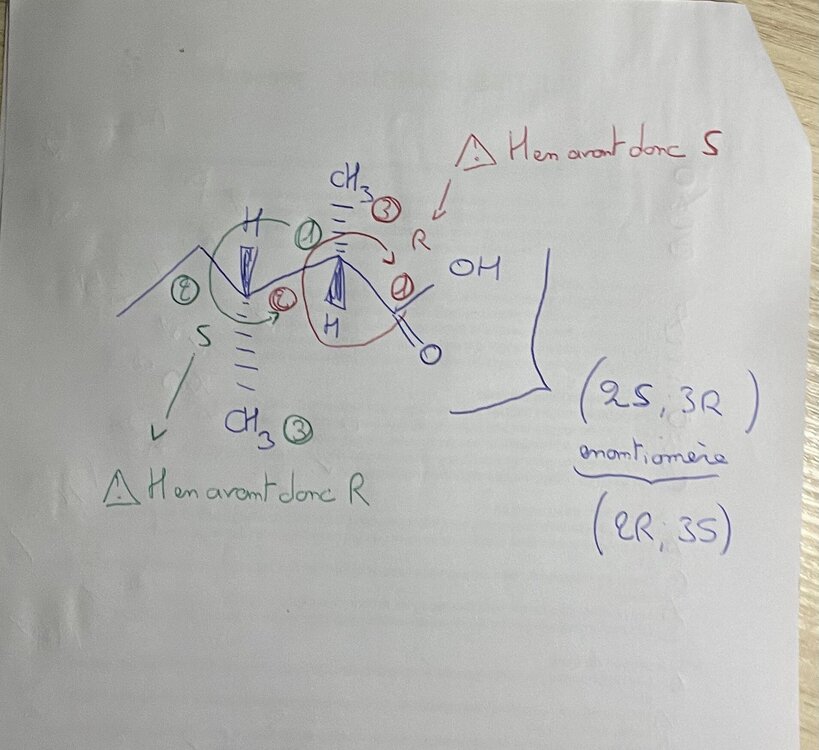 ⚠ H en avant donc S
CH₃ ③
R
H ①
① OH
② ②
H
S
O
CH₃ ③
⚠ H en avant donc R
(2S, 3R)
enantiomère
(2R, 3S)